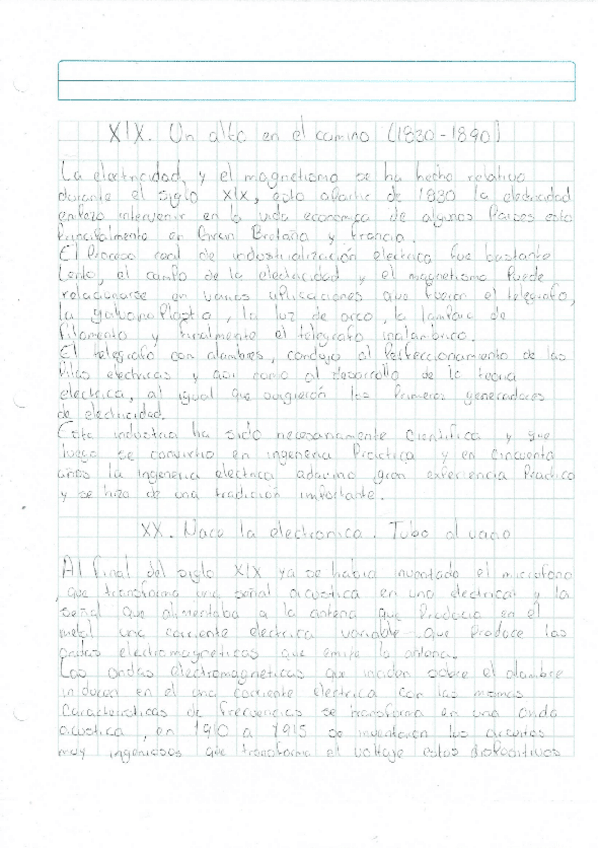 XIX. Un alto en el camino (1830-1890)
La electricidad, y el magnetismo se ha hecho relativo
durante el siglo XIX, esto apartir de 1830 la electricidad
enpezo intervenir en la vida economica de algunos Paises esto
Principalmente en Gran Bretaña y Francia.
El Proceso real de industrialización electrica fue bastante
Lento, el campo de la electricidad y el magnetismo Puede
relacionarse en varias aplicaciones que fueron el telegrafo,
la galvanoPlastia, la luz de arco, la lampara de
filamento y finalmente el telegrafo inalambrico.
El telegrafo con alambres, condujo al Perfeccionamiento de las
Pilas electricas y asi como al desarrollo de la teoria
electrica, al igual que surgierón los Primeros generadores
de electricidad.
Esta industria ha sido necesariamente Cientifica y que
luego se convirtio en ingenieria Practica y en cincuenta
años la ingenieria electrica adquirio gran experiencia Practica
y se hizo de una tradición importante.
XX. Nace la electronica. Tubo al vacio
Al final del siglo XIX ya se habia inventado el microfono
, que transforma una señal acustica en una electrica y la
señal que alimentaba a la antena que Producia en el
metal una corriente electrica variable que Produce las
ondas electromagneticas que emite la antena.
Las ondas electromagneticas que inciden sobre el alambre
inducen en el una corriente electrica con las mismas
Caracteristicas de frecuencias se transforma en una onda
acustica, en 1910 a 1915 se inventaron los circuitos
muy ingeniosos que transforma el voltaje estos dispositivos